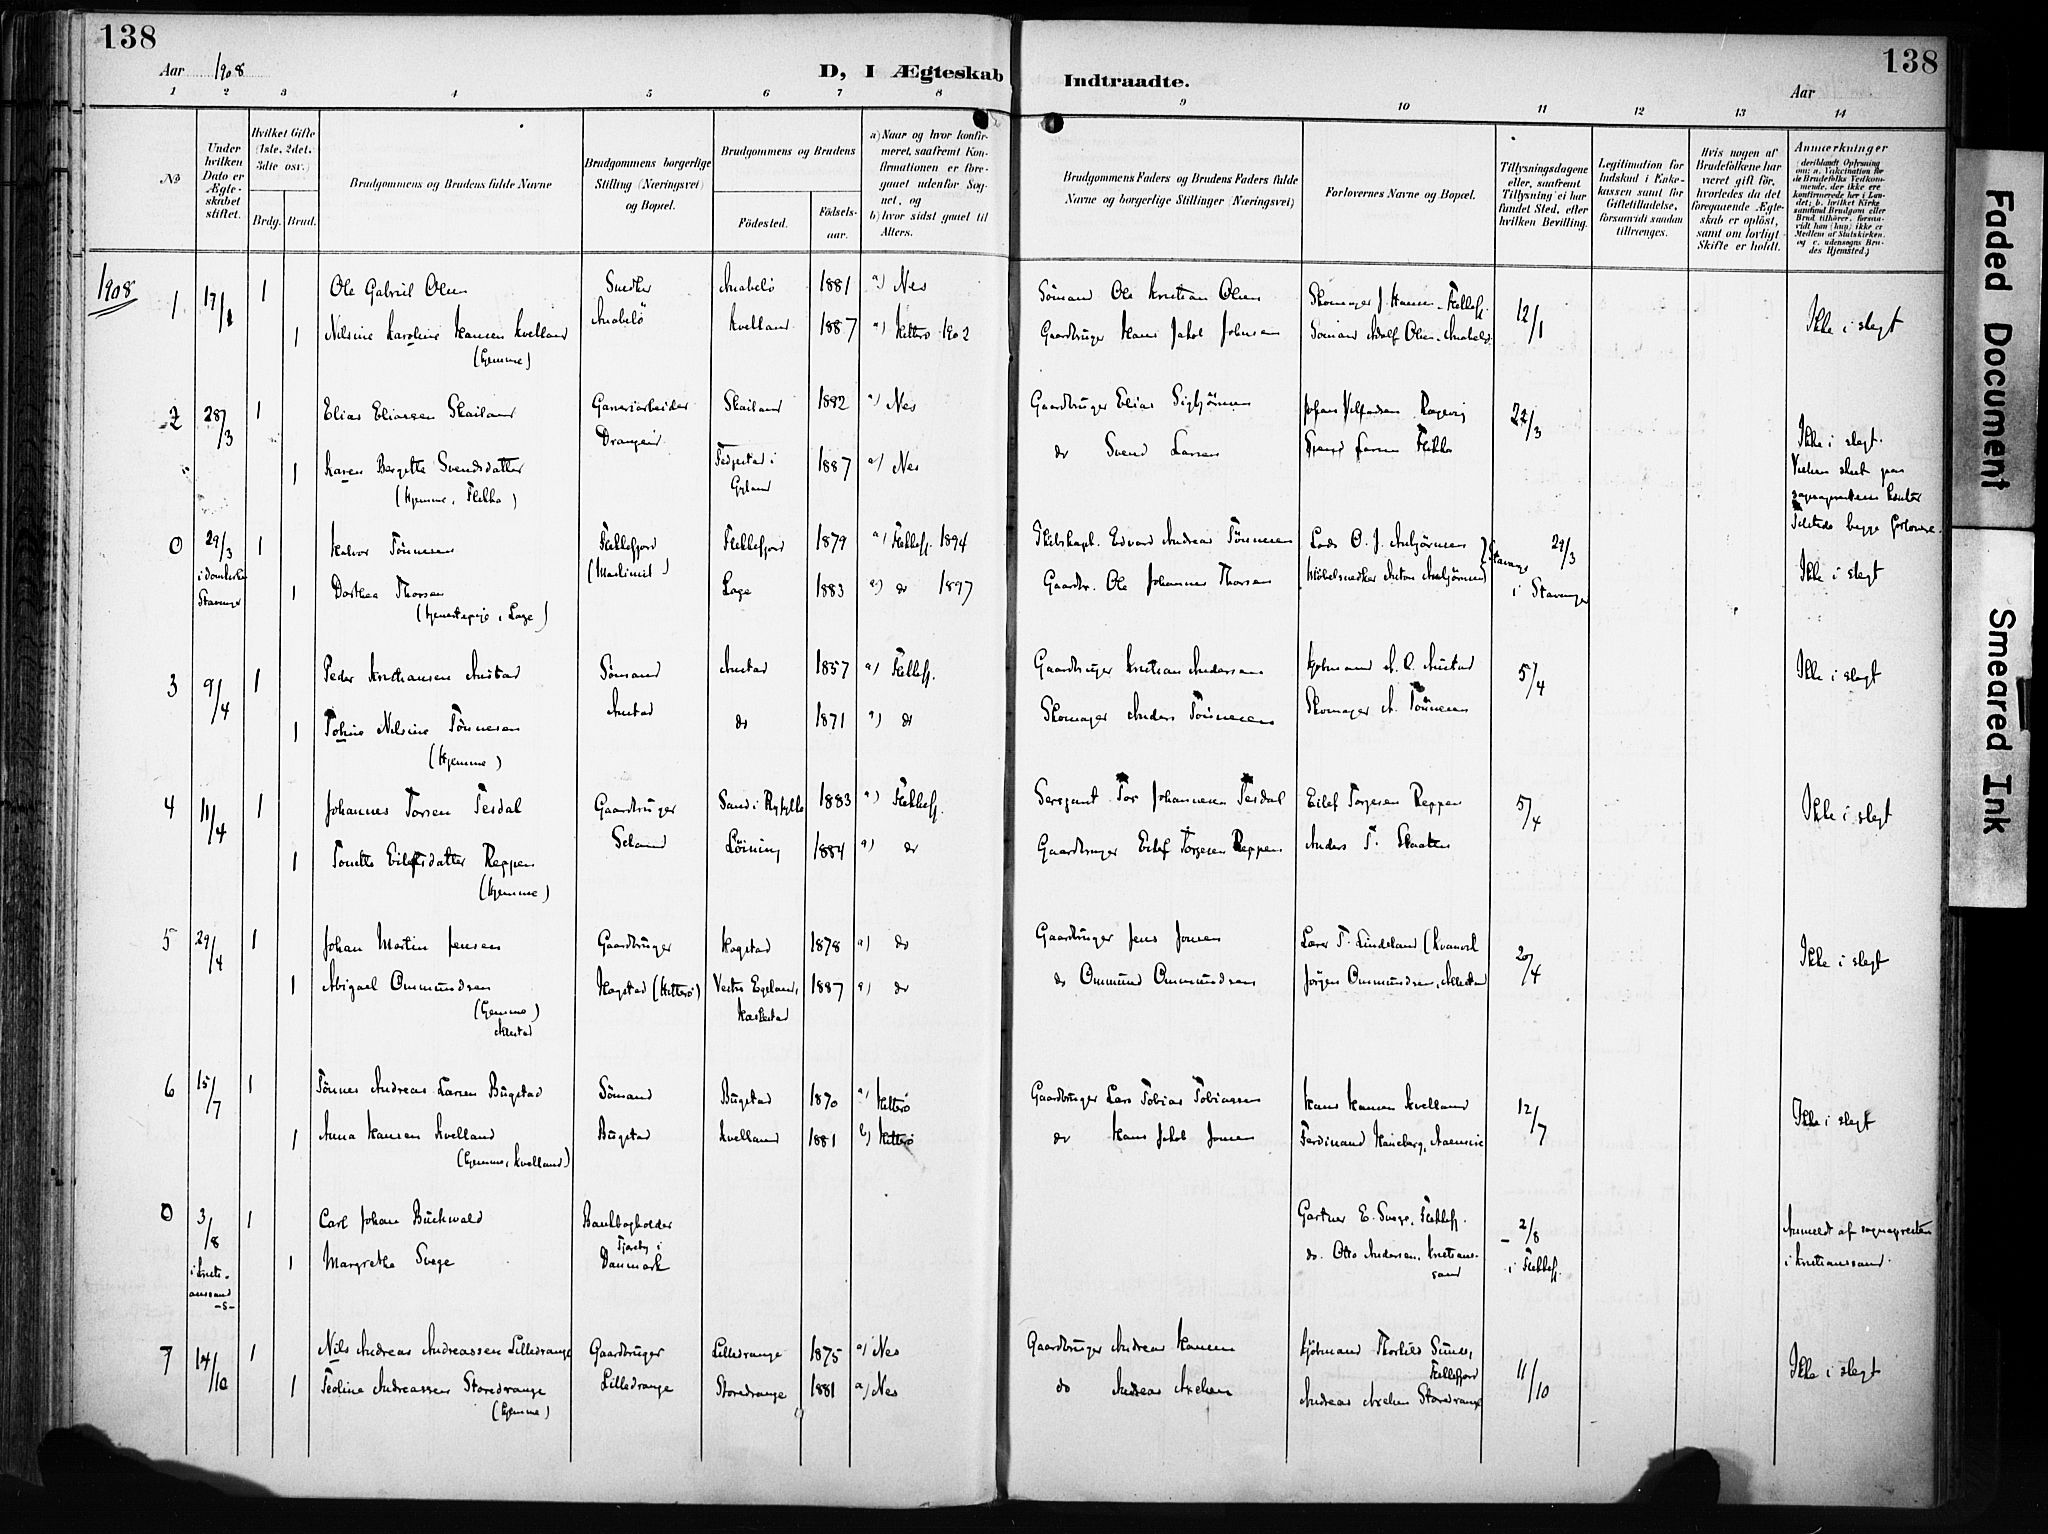 138
138
Aar 1908
D, I Ægteskab Indtraadte.
Aar
1 2 3 4 5 6 7 8 9 10 11 12 13 14
No
Under hvilken Dato er Ægteskabet stiftet.
Hvilket Gifte (1ste, 2det, 3die osv.)
Brdg. Brud.
Brudgommens og Brudens fulde Navne
Brudgommens borgerlige Stilling (Næringsvei) og Bopæl.
Brudgommens og Brudens
Fødested.
Fødselsaar.
a) Naar og hvor konfirmeret, saafremt Konfirmationen er foregaaet udenfor Sognet, og
b) hvor sidst gaaet til Alters.
Brudgommens Faders og Brudens Faders fulde Navne og borgerlige Stillinger (Næringsvei)
Forlovernes Navne og Bopæl.
Tillysningsdagene eller, saafremt Tillysning ei har fundet Sted, efter hvilken Bevilling.
Legitimation for Indskud i Kakekassen samt for Giftetilladelse, forsaavidt saadan tiltrænges.
Hvis nogen af Brudefolkene har været gift før, hvorledes da det foregaaende Ægteskab er opløst, samt om lovligt Skifte er holdt.
Anmerkninger
1908
1 17/1 1 Ole Gabriel Olsen Snedker Anabelø 1881 a) Nes Sømand Ole Kristian Olsen Skomager J. Hansen, Flekkefj. 12/1 Ikke i slegt
1 Nilsine Karoline Hansen Kvelland Anabelø Kvelland 1887 a) Hitterø 1902 Gaardbruger Hans Jakob Johnsen Sømand Adolf Olsen, Anabelø
(hjemme)
2 28/3 1 Elias Eliassen Skailand Garveriarbeider Skailand 1882 a) Nes Gaardbruger Elias Sigbjørnsen 22/3
Drangeid
1 Karen Bergitte Svendsdatter Fedjestad i Gyland 1887 a) Nes do Svend Larsen Svend Larsen Flikka Ikke i slegt.
(hjemme, Flikka)
0 29/3 1 Halvor Tønnesen Flekkefjord Flekkefjord 1879 a) Flekkefj. 1894 Edvard Andreas Tønnesen Lods O. J. Anbjørnsen Stavanger 29/3
i domkirken Stavanger (Maskinist)
1 Dorthea Thorsen Loge 1883 a) do 1897 Gaardbr. Ole Johannes Thorsen Møbelsnedker Anton Anbjørnsen i Stavanger Ikke i slegt
(tjenestepige, Loge)
3 9/4 1 Peder Kristiansen Austad Sømand Austad 1857 a) Flekkefj. Gaardbruger Kristian Andersen Kjøbmand A. O. Austad 5/4 Ikke i slegt
Austad
1 Tobine Nilsine Tønnesen do 1871 a) do Skomager Anders Tønnesen Skomager A. Tønnesen
(hjemme)
4 11/4 1 Johannes Torsen Tesdal Gaardbruger Sand i Ryfylke 1883 a) Flekkefj. Sersjant Tor Johannesen Tesdal Eilef Torgesen Reppen 5/4 Ikke i slegt
Seland
1 Tonette Eilefsdatter Reppen Løining 1884 a) do Gaardbruger Eilef Torgesen Reppen Anders T. Skaaten
(hjemme)
5 29/4 1 Johan Martin Jensen Gaardbruger Hogstad 1878 a) do Gaardbruger Jens Jonsen Lærer T. Lindeland (Kvanvik 20/4 Ikke i slegt
1 Abigael Ommundsen Hogstad (Hitterø) Vestre Egeland, 1887 a) do do Ommund Ommundsen Jørgen Ommundsen,
(hjemme) Austad
6 15/7 1 Tønnes Andreas Larsen Bugstad Sømand Bugstad 1870 a) Hitterø Gaardbruger Lars Tobias Tobiassen Hans Hansen Kvelland 12/7 Ikke i slegt
1 Anna Hansen Kvelland Bugstad Kvelland 1881 b) Hitterø do Hans Jakob Jonsen Ferdinand
(hjemme, Kvelland)
0 3/8 1 Carl Johan Buchwald Bankbogholder Gartner E. Svege, Flekkefj. 2/8 Anmeldt af sognepresten
i Kristianssand -S-
1 Margrethe Svege Danmark do. Otto Andersen, Kristianssand i Flekkefj. i Kristianssand.
7 14/10 1 Nils Andreas Andreassen Lilledrange Gaardbruger Lilledrange 1875 a) Nes Gaardbruger Andreas Hansen Kjøbmand Thorkild Sunde, Flekkefjord 11/10 Ikke i slegt
1 Teoline Andreassen Storedrange Lilledrange Storedrange 1881 a) Nes do Andreas Axelsen Andreas Axelsen Storedrange
(hjemme)
Faded Document
Smeared Ink